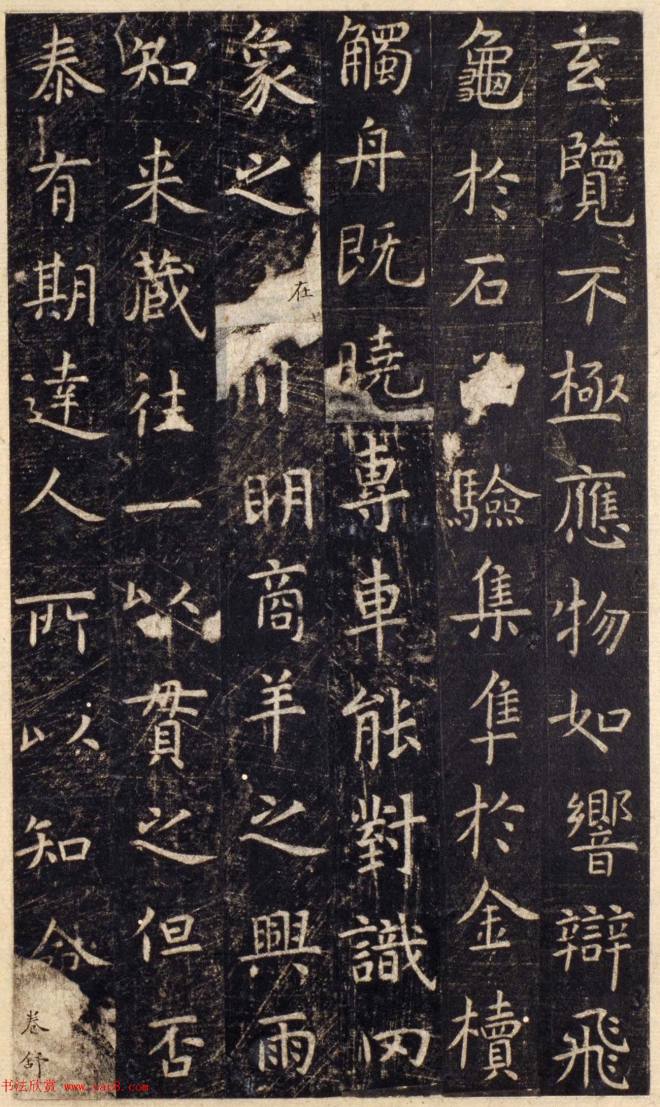 玄覽不極應物如響辯飛
龜於石驗集隼於金櫝
觸舟既曉專車能對識罔
象之在川明商羊之興雨
知来藏往一以貫之但否
泰有期達人所以知命卷舒
书法欣赏 www.yac8.com